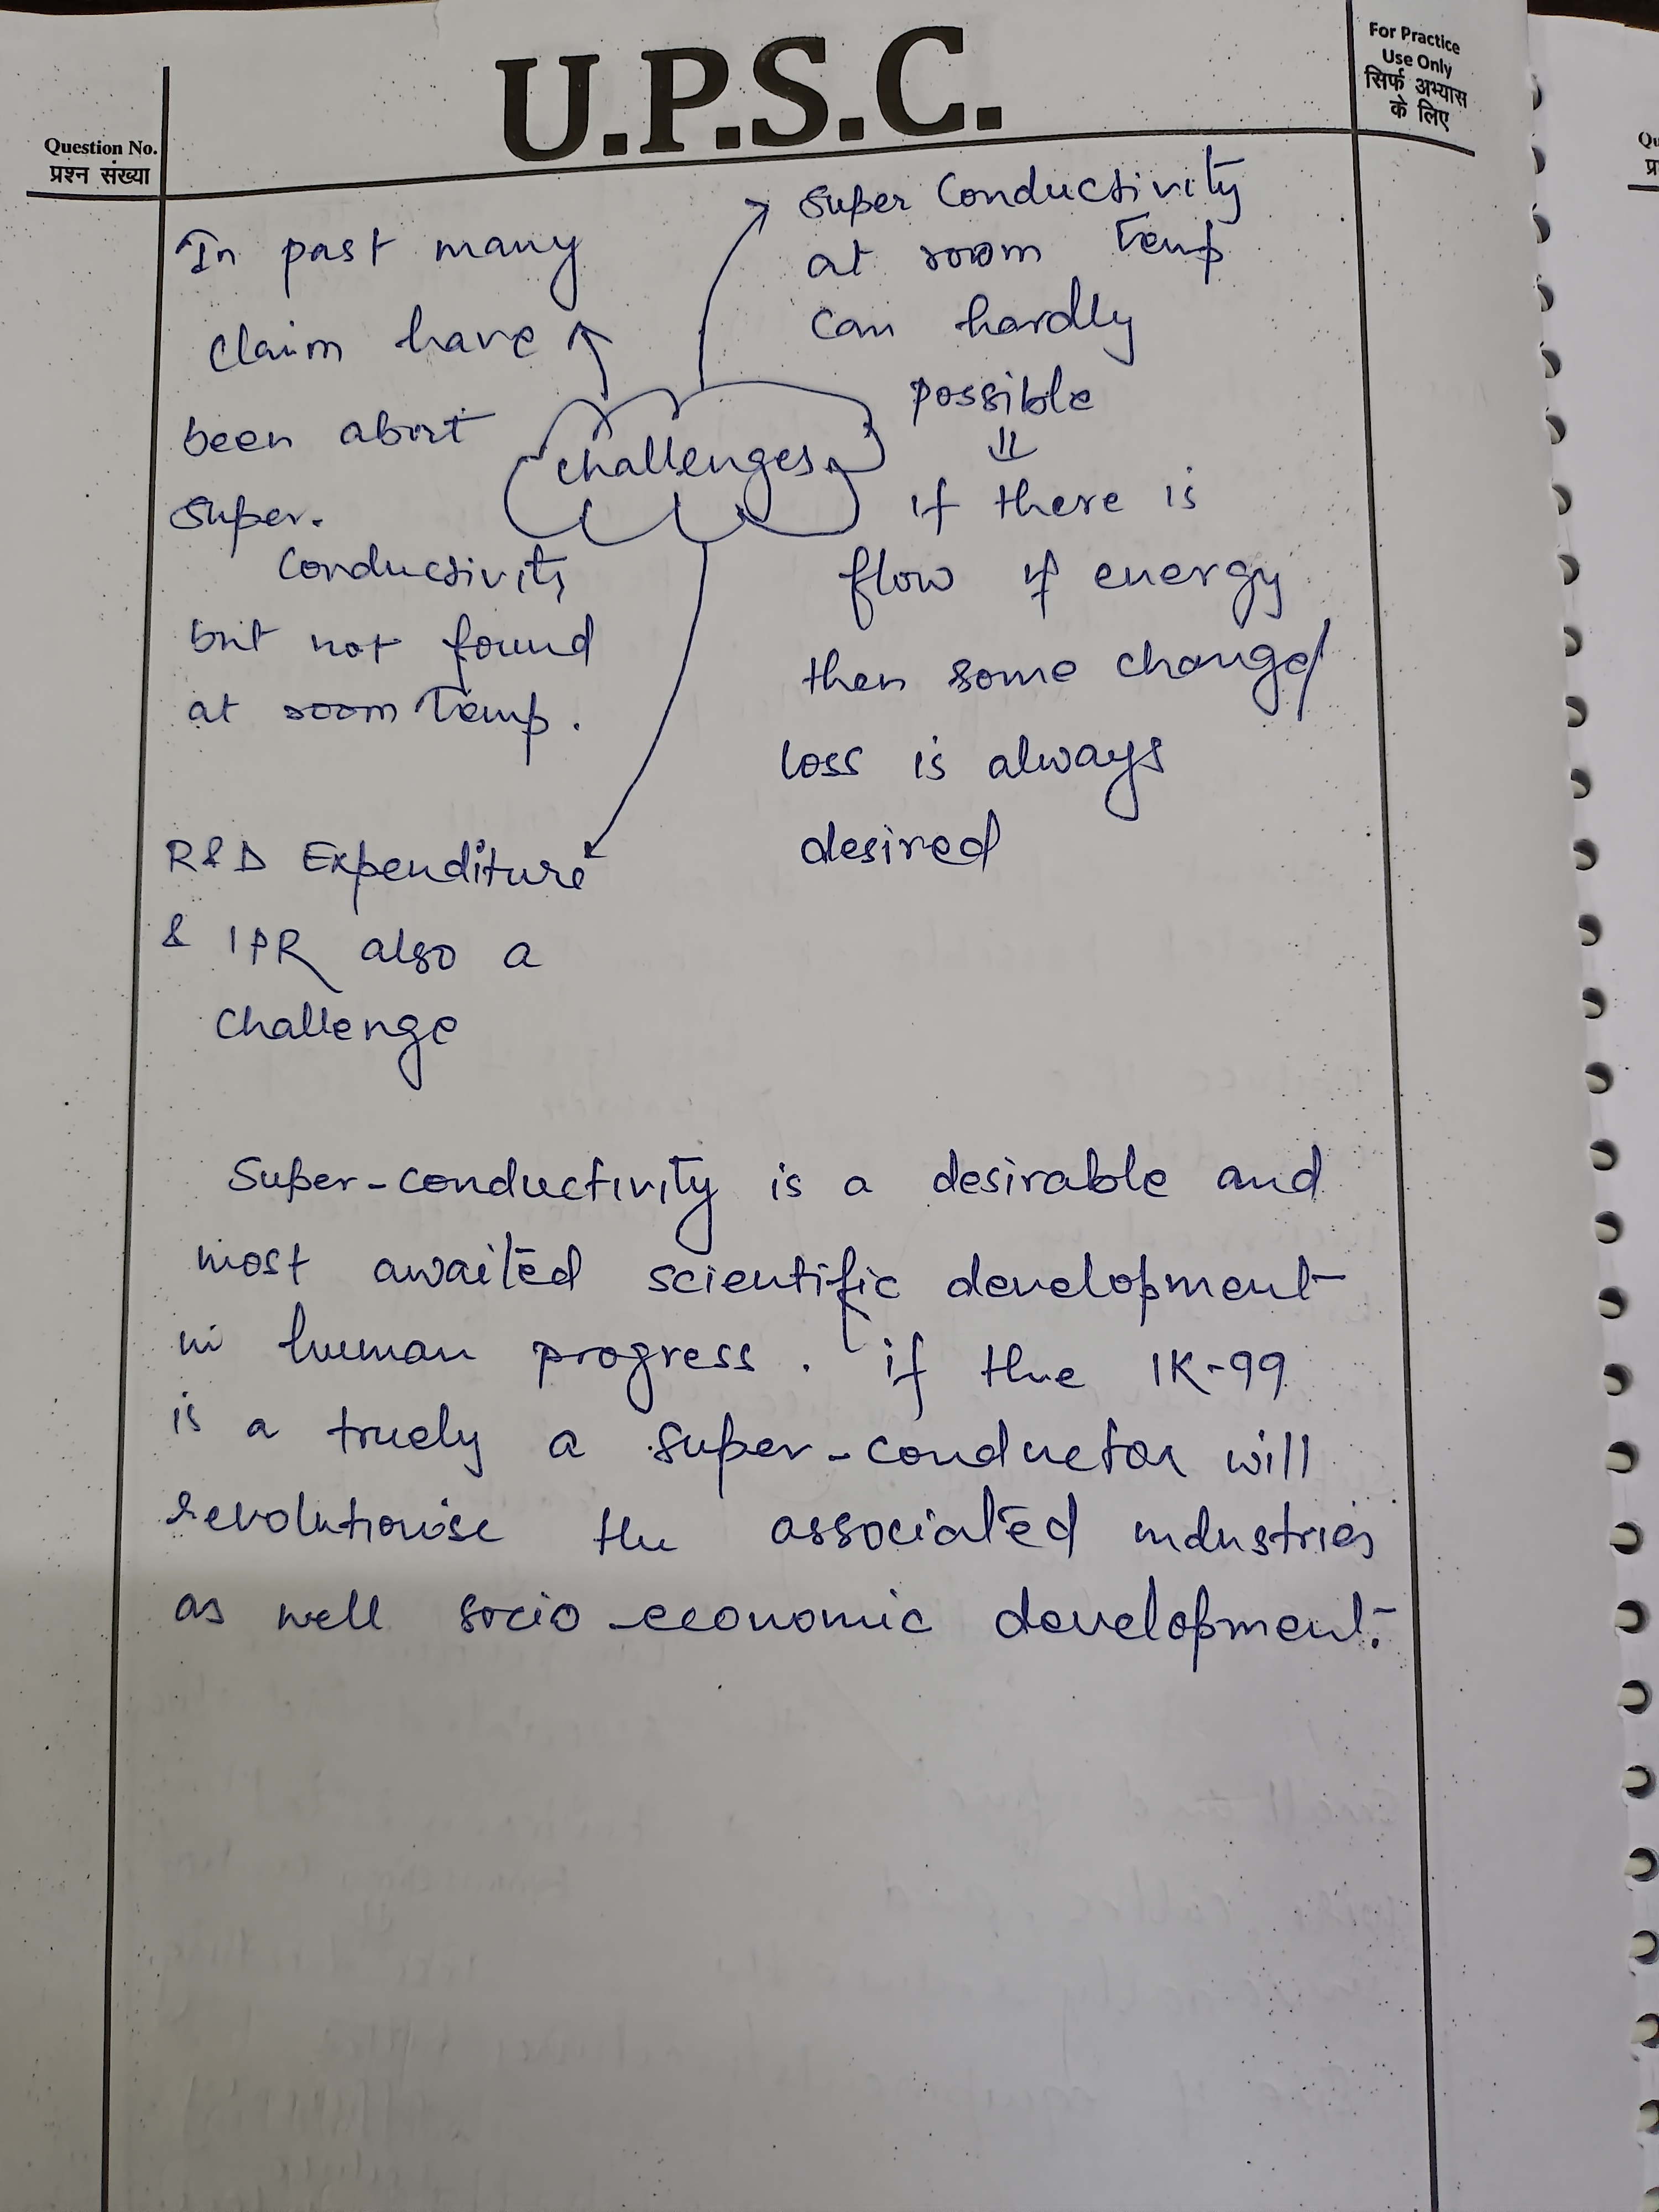 U.P.S.C.
For Practice
Use Only
सिर्फ अभ्यास
के लिए
Question No.
प्रश्न संख्या
In past many
claim have
been about
super.
conductivity
but not found
at room temp.
challenges
super conductivity
at room temp
can hardly
possible
⇓
if there is
flow if energy
then some change/
loss is always
desired
R&D Expenditure
& IPR also a
challenge
Super-conductivity is a desirable and
most awaited scientific development
in human progress. if the lK-99
is a truely a super-conductor will
revolutionise the associated industries
as well socio-economic development.